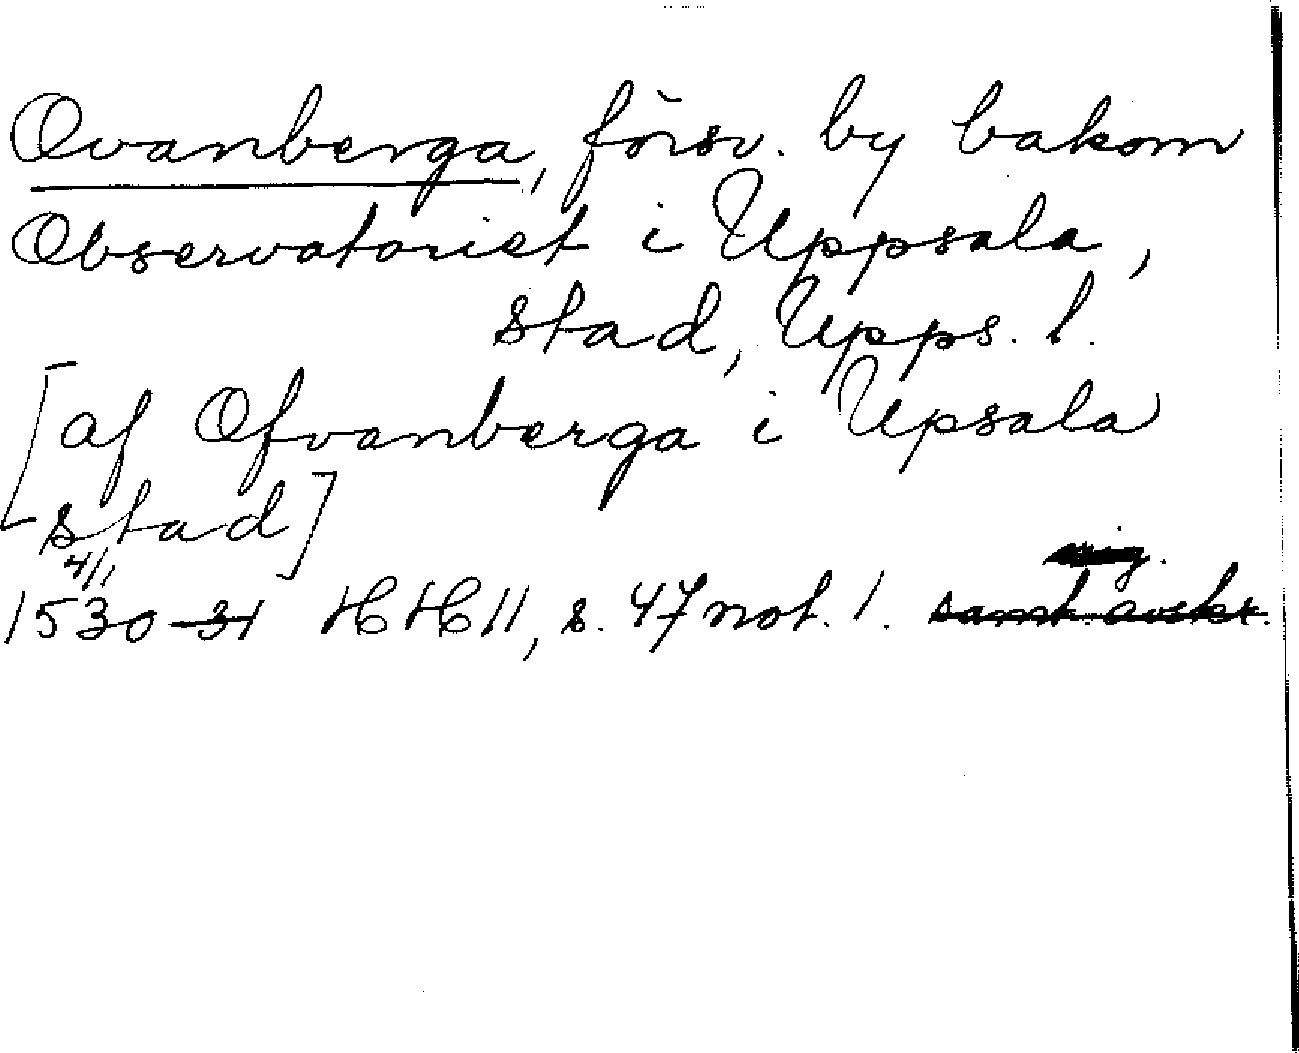 Ovanberga, försv. by bakom
Observatoriet i Uppsala,
stad, Upps. l.
[af Ofvanberga i Upsala
stad]
4/1
1530-31 HH 11, s. 47 not. 1. samt. avskr.